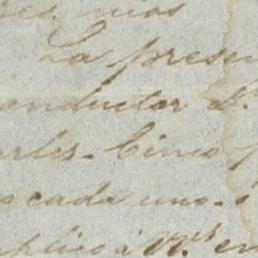 mios
La presen
onductor d
arles. Cinco p
o cada uno.
plico á V.rs en